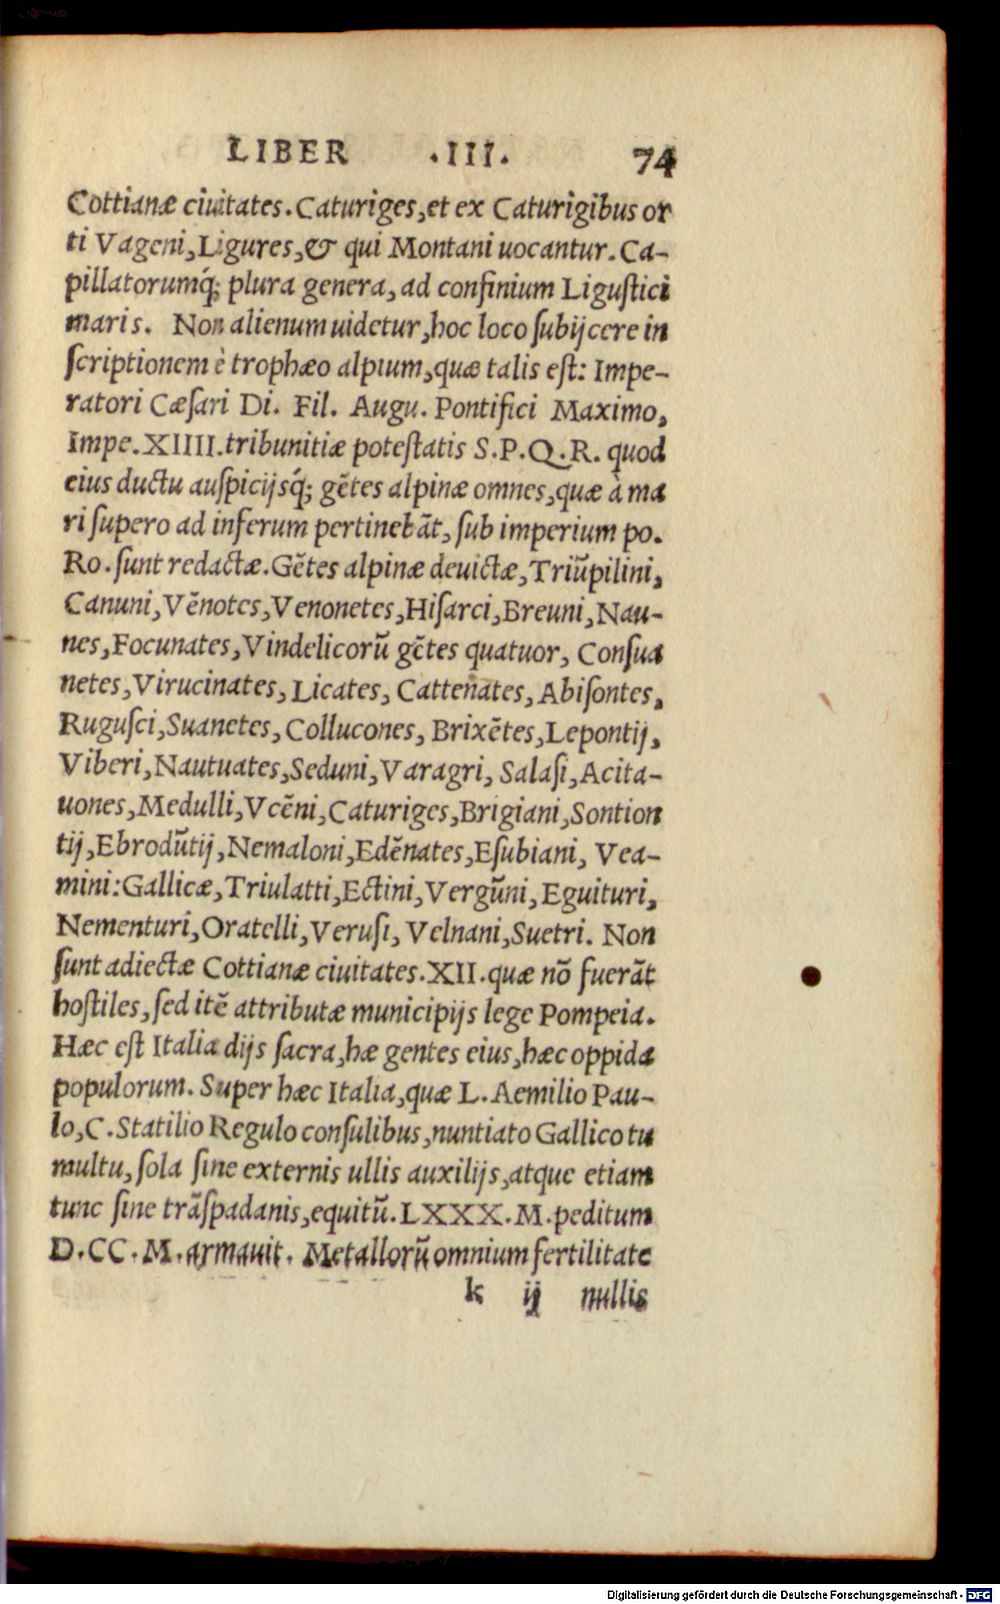 LIBER .III. 74
Cottianæ ciuitates. Caturiges, et ex Caturigibus or
ti Vageni, Ligures, & qui Montani uocantur. Ca-
pillatorumq́; plura genera, ad confinium Liguſtici
maris. Non alienum uidetur, hoc loco ſubijcere in
ſcriptionem è trophæo alpium, quæ talis eſt: Impe-
ratori Cæſari Di. Fil. Augu. Pontifici Maximo,
Impe. XIIII. tribunitiæ poteſtatis S.P.Q.R. quod
eius ductu auſpicijsq́; gẽtes alpinæ omnes, quæ à ma
ri ſupero ad inferum pertinebãt, ſub imperium po.
Ro. ſunt redactæ. Gẽtes alpinæ deuictæ, Triũpilini,
Canuni, Vẽnotes, Venonetes, Hiſarci, Breuni, Nau-
nes, Focunates, Vindelicorũ gẽtes quatuor, Conſua
netes, Virucinates, Licates, Cattenates, Abiſontes,
Ruguſci, Suanetes, Collucones, Brixẽtes, Lepontij,
Viberi, Nautuates, Seduni, Varagri, Salaſi, Acita-
uones, Medulli, Vcẽni, Caturiges, Brigiani, Sontion
tij, Ebrodũtij, Nemaloni, Edẽnates, Eſubiani, Vea-
mini: Gallicæ, Triulatti, Ectini, Vergũni, Eguituri,
Nementuri, Oratelli, Veruſi, Velnani, Suetri. Non
ſunt adiectæ Cottianæ ciuitates. XII. quæ nõ fuerãt
hoſtiles, ſed itẽ attributæ municipijs lege Pompeia.
Hæc eſt Italia dijs ſacra, hæ gentes eius, hæc oppida
populorum. Super hæc Italia, quæ L. Aemilio Pau-
lo, C. Statilio Regulo conſulibus, nuntiato Gallico tu
multu, ſola ſine externis ullis auxilijs, atque etiam
tunc ſine trãſpadanis, equitũ. LXXX. M. peditum
D. CC. M. armauit. Metallorũ omnium fertilitate
k ij nullis
Digitalisierung gefördert durch die Deutsche Forschungsgemeinschaft - DFG